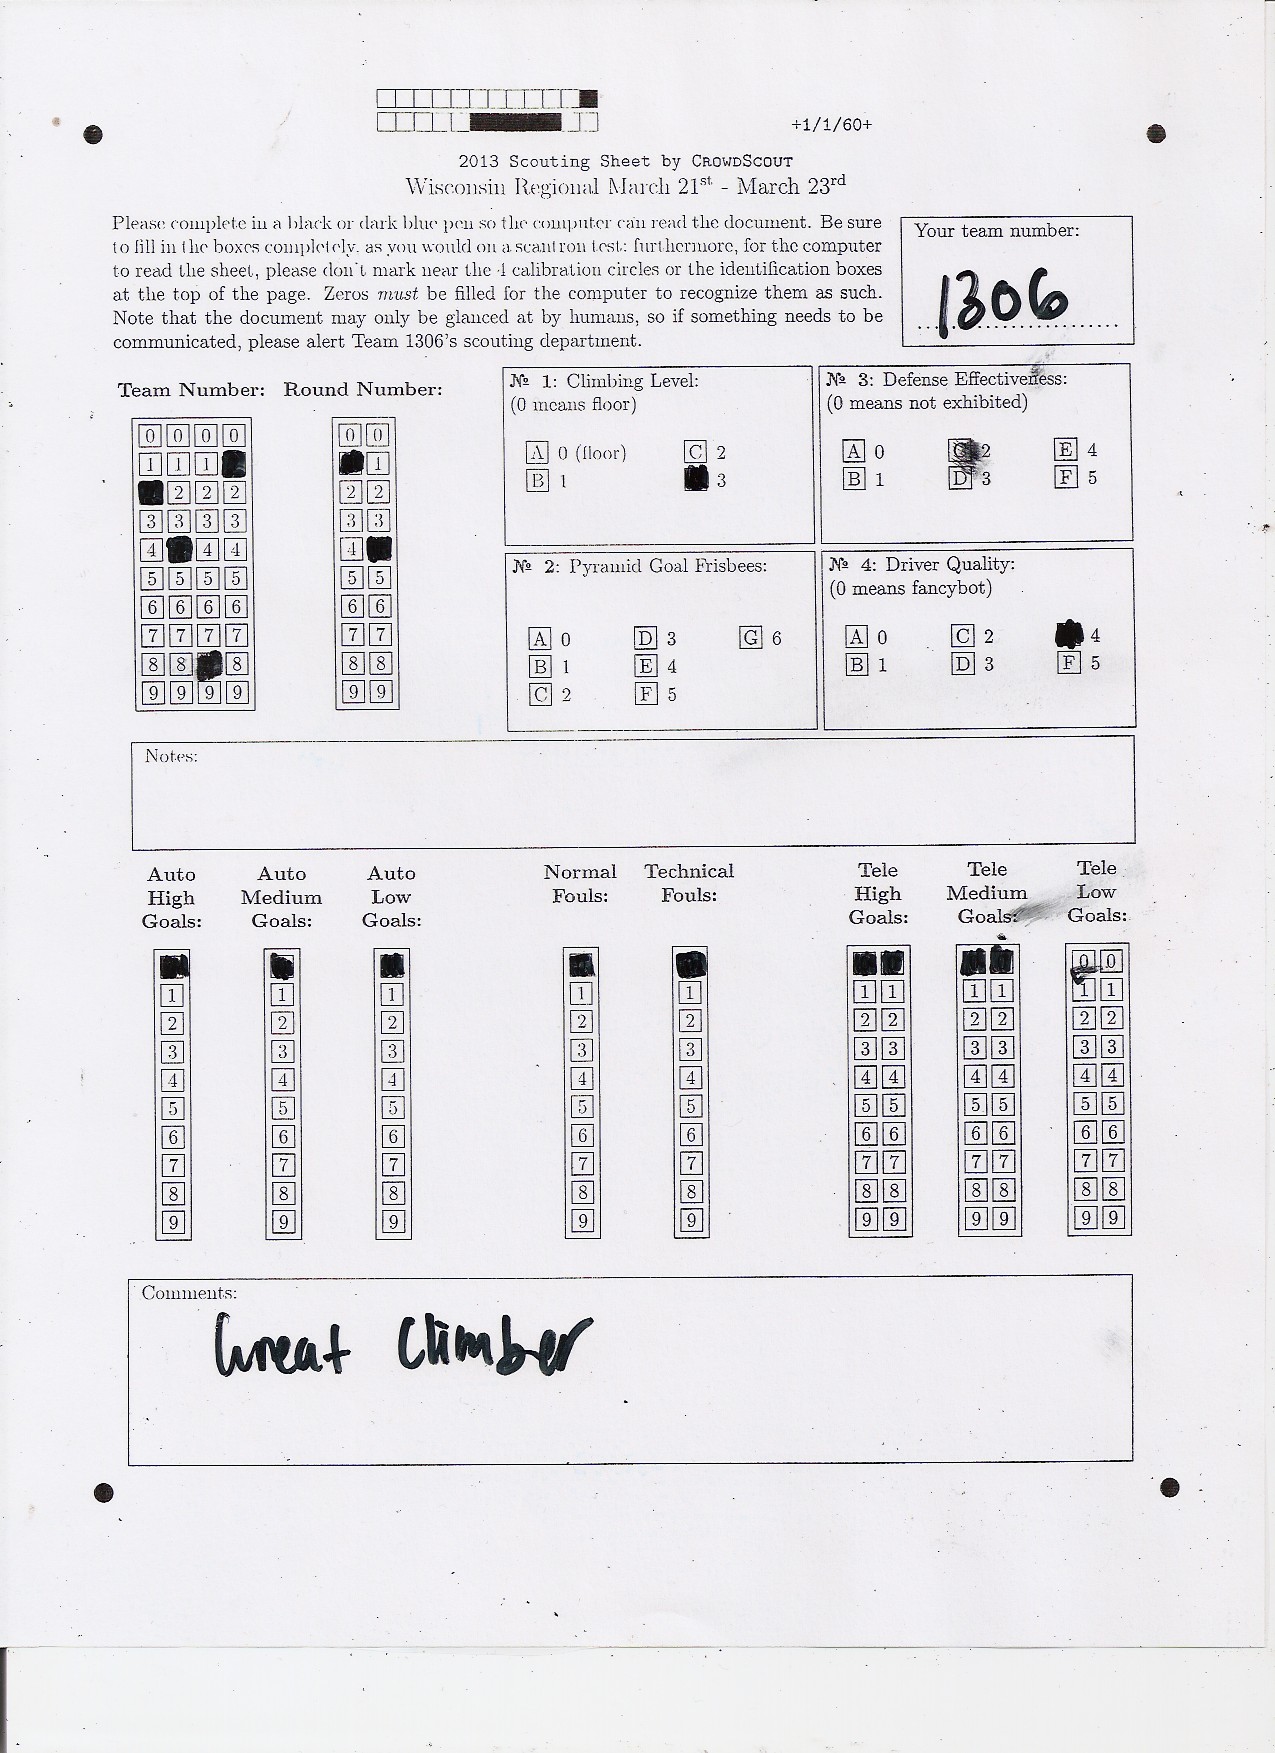 +1/1/60+
2013 Scouting Sheet by CrowdScout
Wisconsin Regional March 21st - March 23rd
Please complete in a black or dark blue pen so the computer can read the document. Be sure
to fill in the boxes completely, as you would on a scantron test; furthermore, for the computer
to read the sheet, please don't mark near the 4 calibration circles or the identification boxes
at the top of the page. Zeros must be filled for the computer to recognize them as such.
Note that the document may only be glanced at by humans, so if something needs to be
communicated, please alert Team 1306's scouting department.
Your team number:
1306
Team Number: Round Number:
0 0 0 0 0 0
1 1 1 1
2 2 2 2 2
3 3 3 3 3 3
4 4 4 4
5 5 5 5 5 5
6 6 6 6 6 6
7 7 7 7 7 7
8 8 8 8 8
9 9 9 9 9 9
№ 1: Climbing Level:
(0 means floor)
A 0 (floor) C 2
B 1 3
№ 3: Defense Effectiveness:
(0 means not exhibited)
A 0 C 2 E 4
B 1 D 3 F 5
№ 2: Pyramid Goal Frisbees:
A 0 D 3 G 6
B 1 E 4
C 2 F 5
№ 4: Driver Quality:
(0 means fancybot)
A 0 C 2 4
B 1 D 3 F 5
Notes:
Auto High Goals: Auto Medium Goals: Auto Low Goals: Normal Fouls: Technical Fouls: Tele High Goals: Tele Medium Goals: Tele Low Goals:
0 0
1 1 1 1 1 1 1 1 1 1 1
2 2 2 2 2 2 2 2 2 2 2
3 3 3 3 3 3 3 3 3 3 3
4 4 4 4 4 4 4 4 4 4 4
5 5 5 5 5 5 5 5 5 5 5
6 6 6 6 6 6 6 6 6 6 6
7 7 7 7 7 7 7 7 7 7 7
8 8 8 8 8 8 8 8 8 8 8
9 9 9 9 9 9 9 9 9 9 9
Comments:
Great Climber